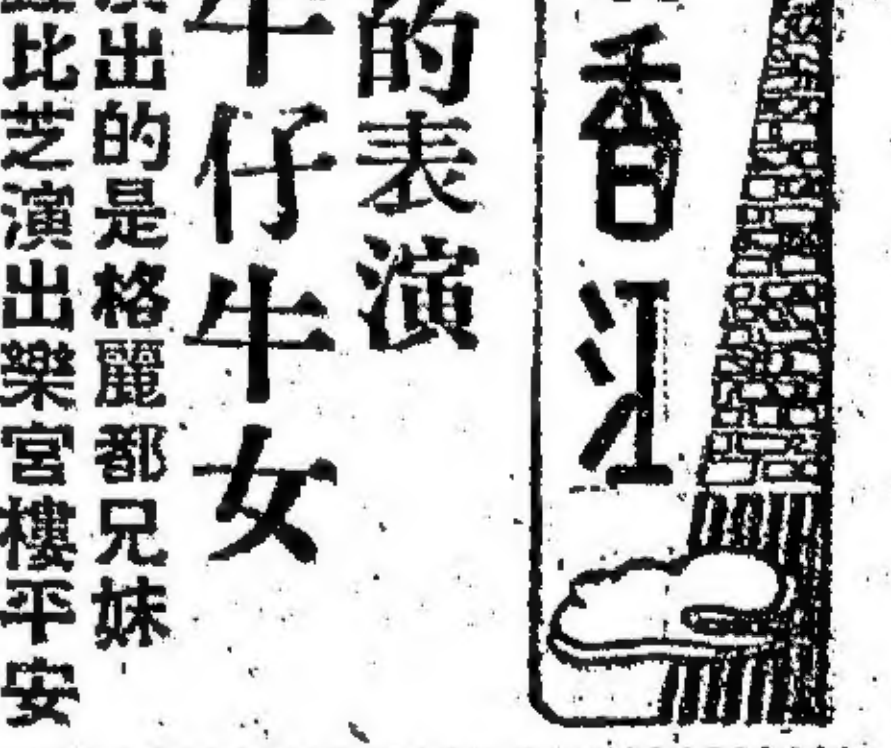 香江
的表演
牛仔牛女
出的是格麗都兄妹
比芝演出樂宮樓平安